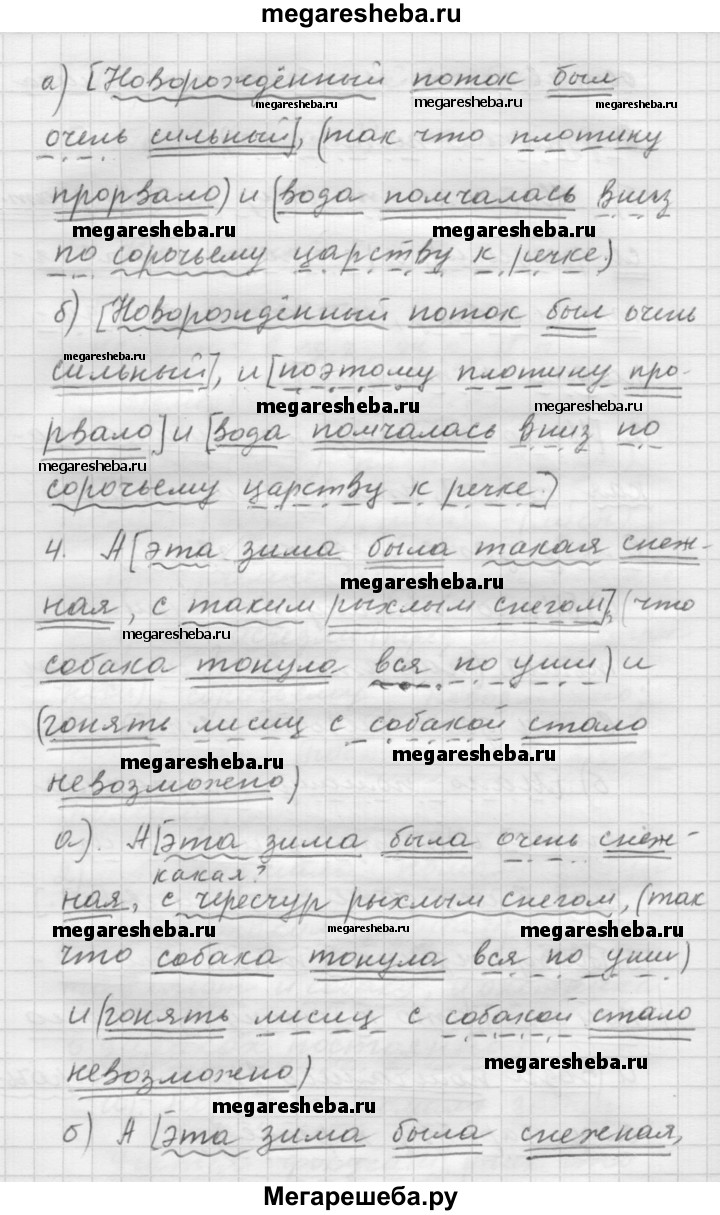 megaresheba.ru
а) [Новорождённый поток был
megaresheba.ru megaresheba.ru megaresheba.ru
очень сильный], (так что плотину
прорвало) и (вода помчалась вниз
megaresheba.ru megaresheba.ru
по сорочьему царству к речке.)
б) [Новорождённый поток был очень
megaresheba.ru
сильный], и [поэтому плотину про-
megaresheba.ru megaresheba.ru
рвало] и [вода помчалась вниз по
megaresheba.ru
сорочьему царству к речке.)
4. А [эта зима была такая снеж-
megaresheba.ru
ная, с таким рыхлым снегом], (что
megaresheba.ru
собака тонула вся по уши) и
(гонять лисиц с собакой стало
megaresheba.ru megaresheba.ru
невозможно)
а). А [эта зима была очень снеж-
какая?
ная, с чересчур рыхлым снегом, (так
megaresheba.ru megaresheba.ru megaresheba.ru
что собака тонула вся по уши)
и (гонять лисиц с собакой стало
megaresheba.ru
невозможно)
megaresheba.ru
б) А [эта зима была снежная,
Мегарешеба.ру